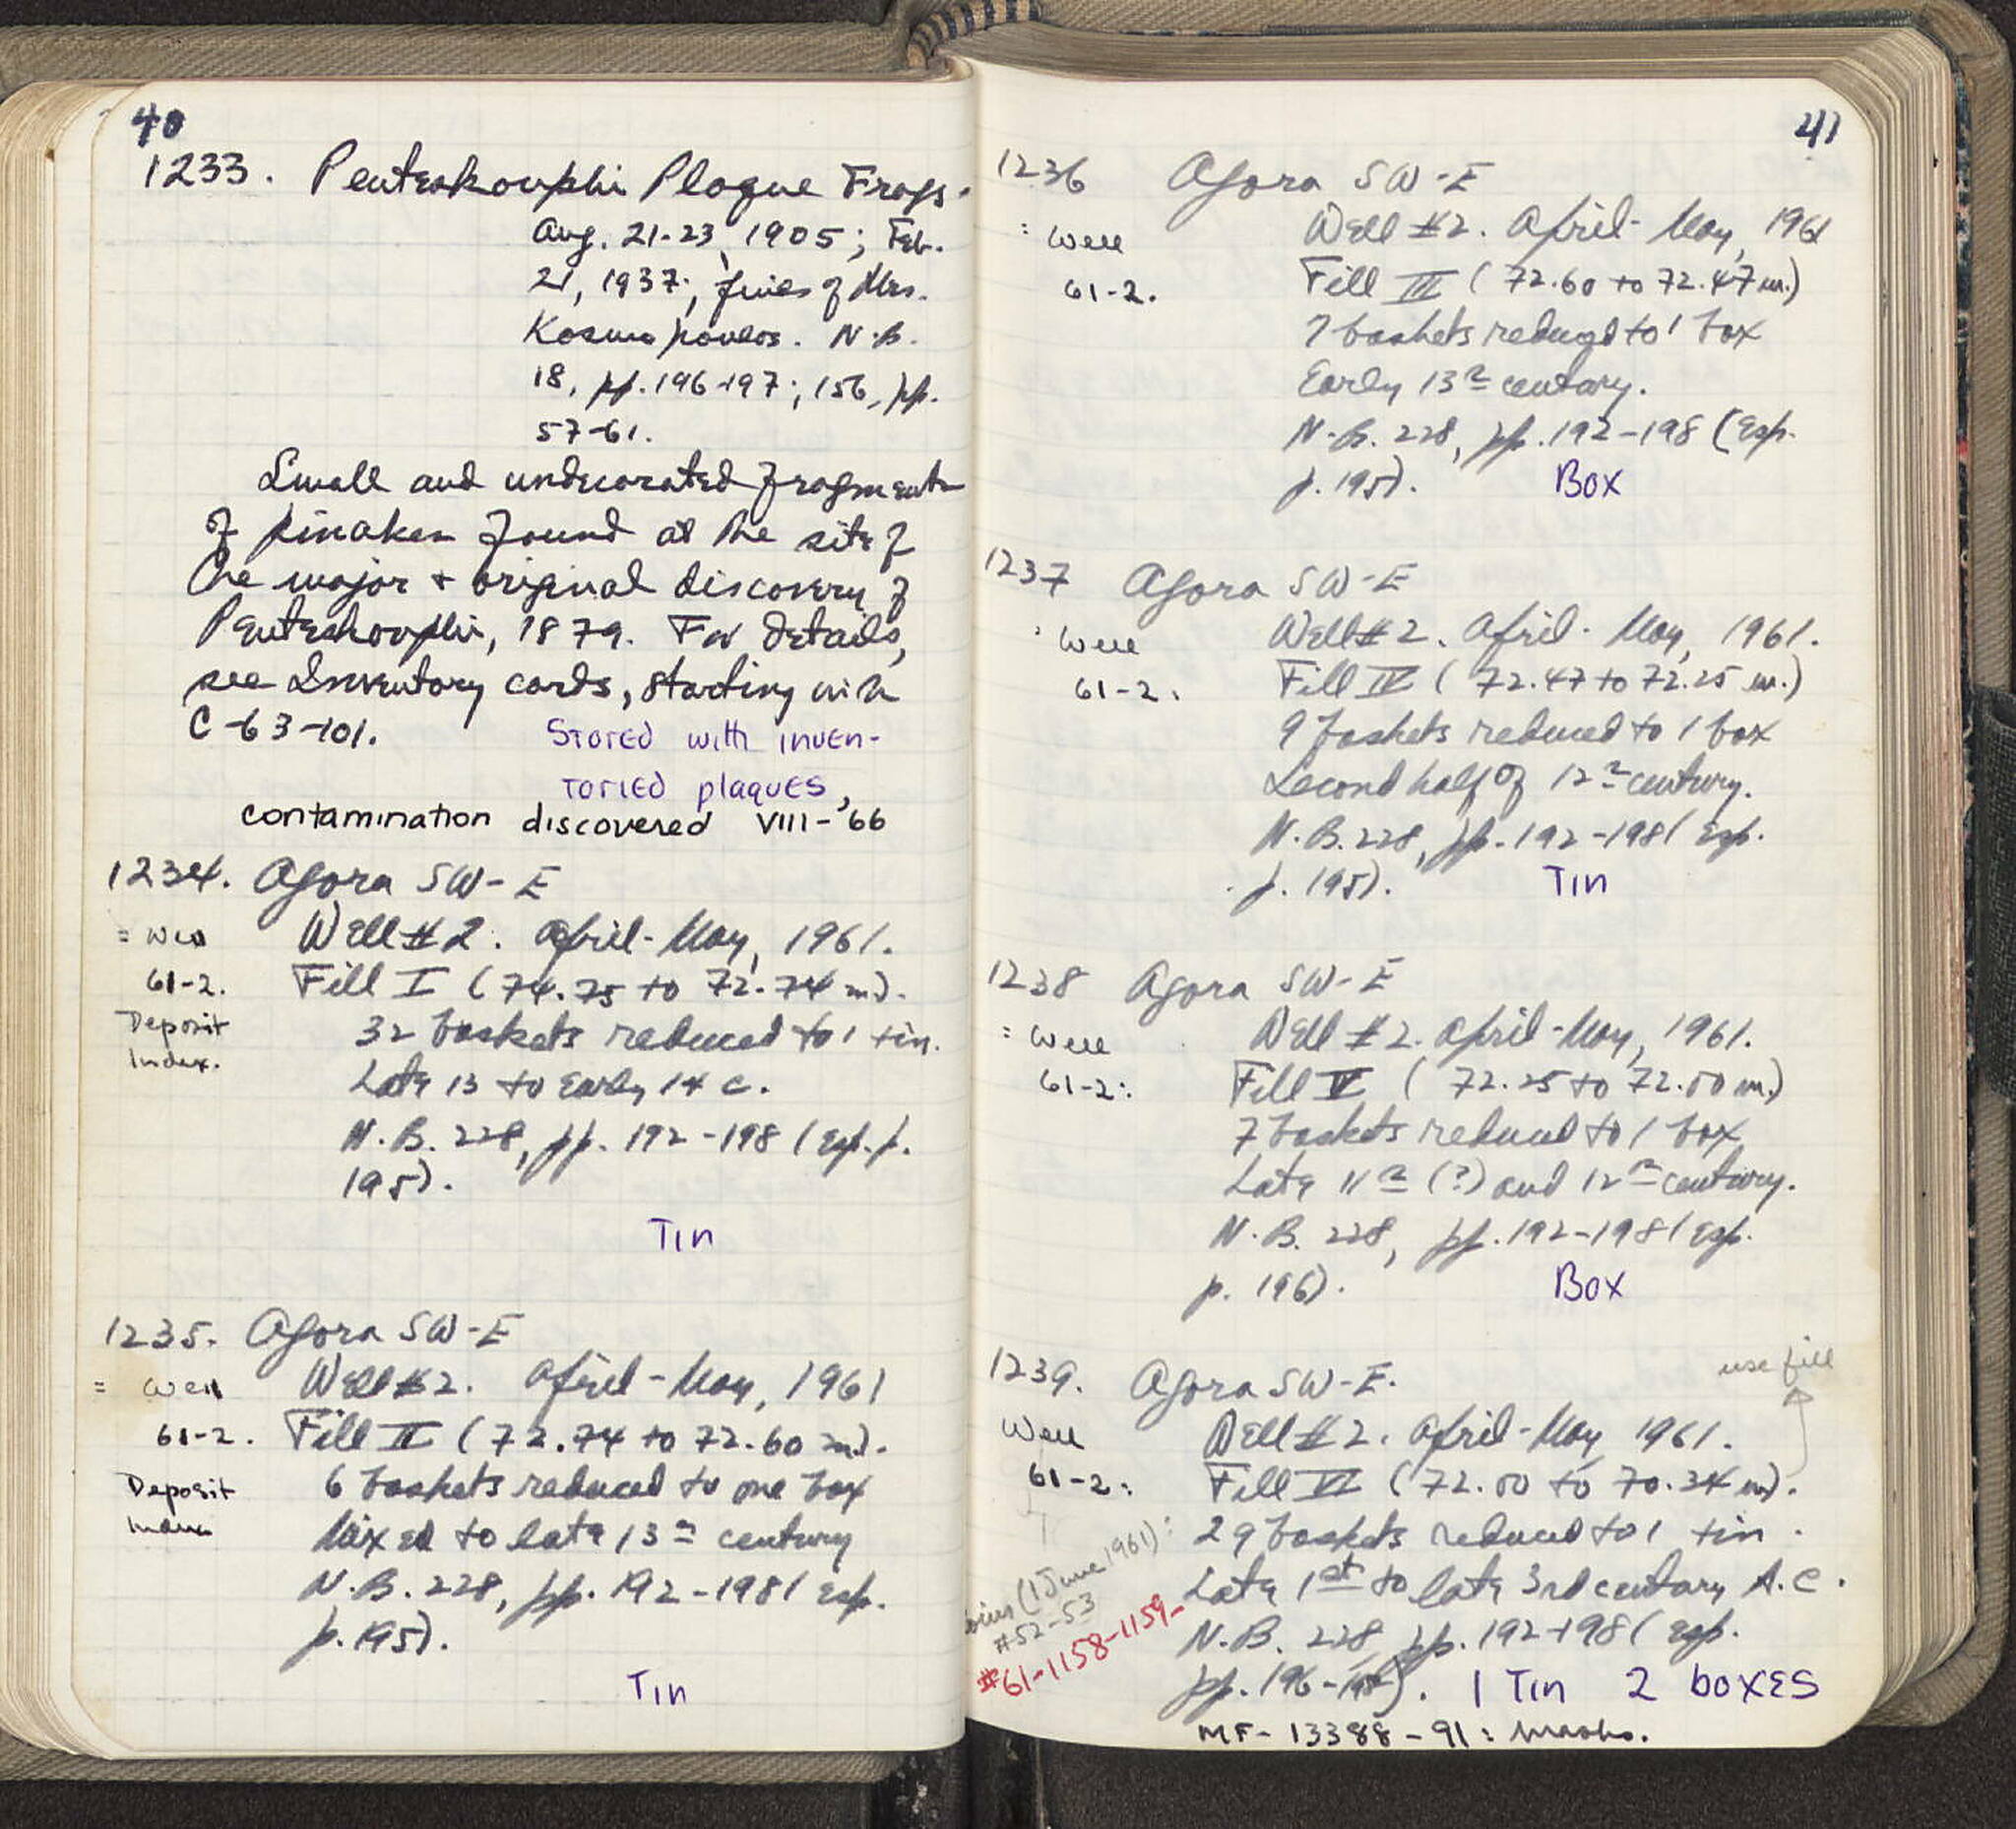 40
1233. Penteskouphi Plaque Frags.
Aug. 21-23, 1905; Feb.
21, 1937; finds of Mrs.
Kosmopoulos. N.B.
18, pp. 196-197; 156, pp.
57-61.
Small and undecorated fragments
of pinakes found at the site of
the major + original discovery of
Penteskouphi, 1879. For details,
see Inventory cards, starting with
C-63-101.
Stored with inven-
toried plaques,
contamination discovered VIII-'66
1234. Agora SW-E
= Well Well #2. April-May, 1961.
61-2. Fill I (74.75 to 72.74 m).
Deposit 32 baskets reduced to 1 tin.
Index. Late 13 to early 14 c.
N.B. 228, pp. 192-198 (esp. p.
195).
Tin
1235. Agora SW-E
= Well Well #2. April-May, 1961
61-2. Fill II (72.74 to 72.60 m).
Deposit 6 baskets reduced to one box
Index Mixed to late 13th century
N.B. 228, pp. 192-198 (esp.
p. 195).
Tin
41
1236 Agora SW-E
: Well Well #2. April-May, 1961
61-2. Fill III (72.60 to 72.47 m.)
7 baskets reduced to 1 box
Early 13th century.
N.B. 228, pp. 192-198 (Esp.
p. 195). Box
1237 Agora SW-E
: Well Well #2. April-May, 1961.
61-2: Fill IV (72.47 to 72.25 m.)
9 baskets reduced to 1 box
Second half of 12th century.
N.B. 228, pp. 192-198 (esp.
p. 195). Tin
1238 Agora SW-E
: Well Well #2. April-May, 1961.
61-2: Fill V (72.25 to 72.00 m.)
7 baskets reduced to 1 box
Late 11th (?) and 12th century.
N.B. 228, pp. 192-198 (esp.
p. 196). Box
use fill
1239. Agora SW-E.
Well Well #2. April-May 1961.
61-2: Fill VI (72.00 to 70.34 m).
29 baskets reduced to 1 tin.
Late 1st to late 3rd century A.C.
N.B. 228, pp. 192-198 (esp.
pp. 196-198). 1 Tin 2 boxes
MF-13388-91: masks.
(1 June 1961):
#52-53
#61-1158-1159-